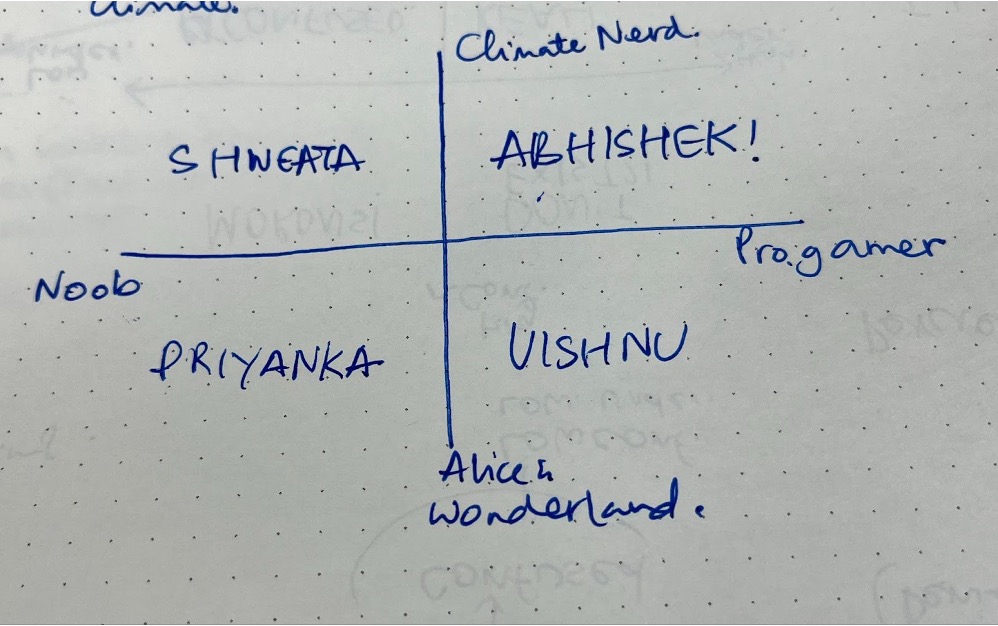 Climate.
Climate Nerd.
SHWEATA
ABHISHEK!
Pro.gamer
Noob
PRIYANKA
VISHNU
Alice in
wonderland.
Confused